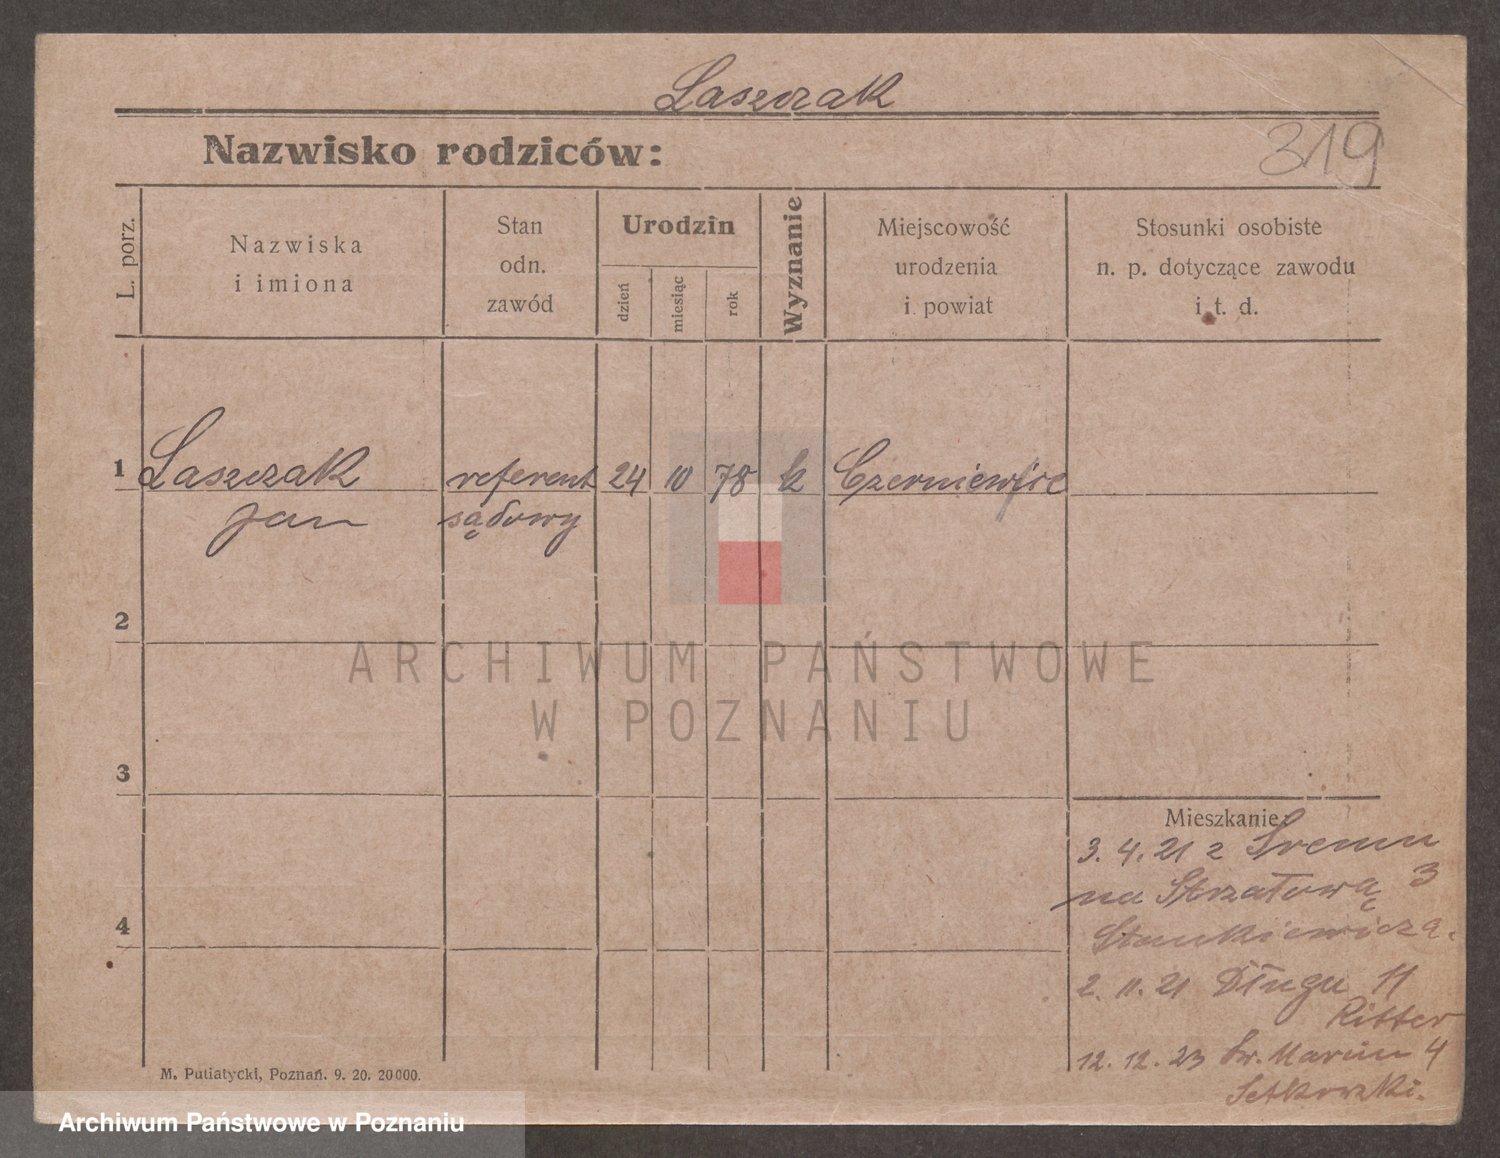 Laszczak
Nazwisko rodziców:
319
L. porz.
Nazwiska
i imiona
Stan
odn.
zawód
Urodzin
dzień
miesiąc
rok
Wyznanie
Miejscowość
urodzenia
i powiat
Stosunki osobiste
n. p. dotyczące zawodu
i t. d.
1 Laszczak referent 24 10 78 k Czerniewice
Jan sądowy
2
3
4
ARCHIWUM PAŃSTWOWE
W POZNANIU
Mieszkanie:
3. 4. 21 z Śremu
na Strzałową 3
Stankiewicza.
2. 11. 21 Długa 11
Ritter
12. 12. 23 Św. Marcin 4
Setkowski.
M. Putiatycki, Poznań. 9. 20. 20000.
Archiwum Państwowe w Poznaniu